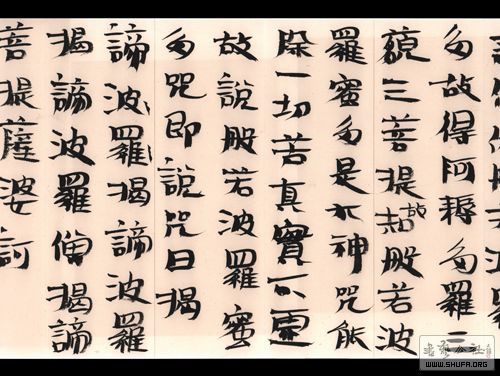 多故得阿耨多羅三
藐三菩提故知般若波
羅蜜多是大神咒能
除一切苦真實不虛
故說般若波羅蜜
多咒即說咒曰揭
諦波羅揭諦波羅
揭諦波羅僧揭諦
菩提薩婆訶
WWW.SHUFA.ORG